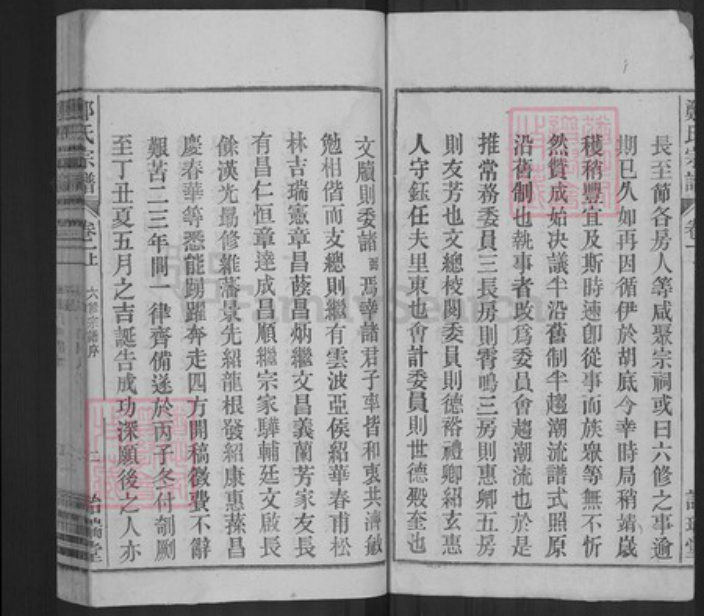 長至節各房人等咸聚宗祠或曰六修之事逾
期已久如再因循伊於胡底今幸時局稍靖歲
穫稍豐宜及斯時速卽從事而族衆等無不忻
然贊成始决議半沿舊制半趨潮流譜式照原
沿舊制也執事者改爲委員會趨潮流也於是
推常務委員三長房則霄鳴三房則惠卿五房
則友芳也文總校閱委員則德裕禮卿紹玄惠
人守鈺任夫里東也會計委員則世德殿奎也
文牘則委諸 焉幸諸君子率皆和衷共濟敏
勉相偕而支總則繼有雲波亞侯紹華春甫松
林吉瑞憲章昌蔭昌炳繼文昌義蘭芳家友長
有昌仁恒章達成昌順繼宗家驊輔廷文啟長
餘漢光昻修維藩景先紹龍根發紹康惠蓀昌
慶春華等悉能踴躍奔走四方開稿徵費不辭
艱苦二三年間一律齊備遂於丙子冬付剞劂
至丁丑夏五月之吉誕告成功深願後之人亦
鄭氏宗譜
卷一上
六修宗譜序
二
詒穀堂
鄭氏宗譜
卷一
FamilySearch